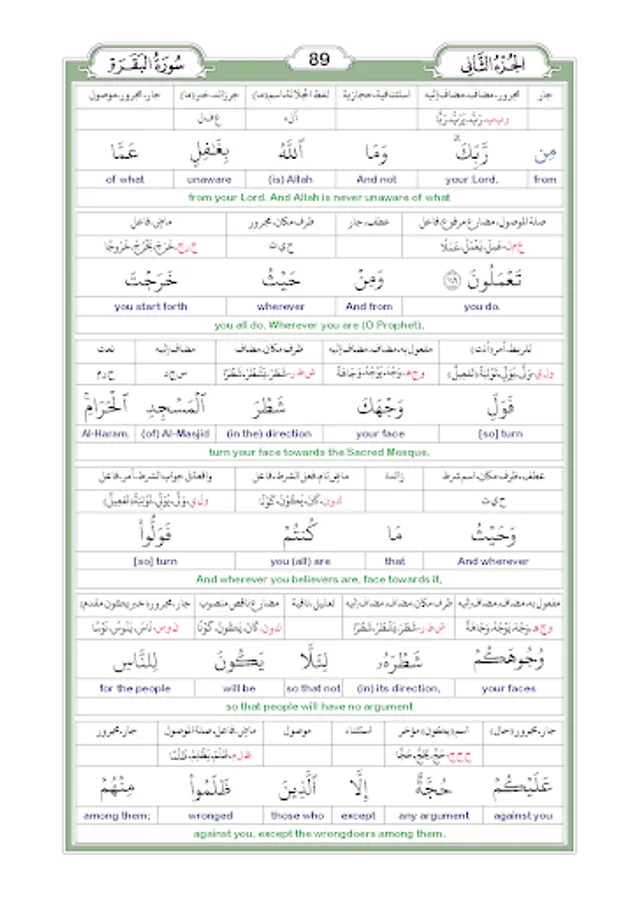 الجزء الثاني 89 سورة البقرة
جار مجرور، مضاف، مضاف إليه استئنافية، حجازية لفظ الجلالة، اسم (ما) جر زائد، خبر (ما) جار، مجرور، موصول
ر ب ب، رَبَّ، يَرُبُّ، رَبًّا أ ل ه غ ف ل
مِن رَّبِّكَ ۗ وَمَا ٱللَّهُ بِغَٰفِلٍ عَمَّا
from your Lord. And not (is) Allah unaware of what
from your Lord. And Allah is never unaware of what
صلة الموصول، مضارع مرفوع، فاعل عطف، جار ظرف مكان، مجرور ماضٍ، فاعل
ع م ل، عَمِلَ، يَعْمَلُ، عَمَلًا ح ي ث خ ر ج، خَرَجَ، يَخْرُجُ، خُرُوجًا
تَعْمَلُونَ وَمِنْ حَيْثُ خَرَجْتَ
you do. And from wherever you start forth
you all do. Wherever you are (O Prophet),
للربط، أمر (أنت) مفعول به، مضاف، مضاف إليه ظرف مكان، مضاف مضاف إليه نعت
و ل ي، وَلَّى، يُوَلِّي، تَوْلِيَةً (تفعيل) و ج ه، وَجُهَ، يَوْجُهُ، وَجَاهَةً ش ط ر، شَطَرَ، يَشْطُرُ، شَطْرًا س ج د ح ر م
فَوَلِّ وَجْهَكَ شَطْرَ ٱلْمَسْجِدِ ٱلْحَرَامِ ۚ
[so] turn your face (in the) direction (of) Al-Masjid Al-Haram,
turn your face towards the Sacred Mosque.
عطف، ظرف مكان، اسم شرط زائدة ماضٍ تام، فعل الشرط، فاعل جواب الشرط، أمر، فاعل
ح ي ث ك و ن، كَانَ، يَكُونُ، كَوْنًا و ل ي، وَلَّى، يُوَلِّي، تَوْلِيَةً (تفعيل)
وَحَيْثُ مَا كُنتُمْ فَوَلُّوا۟
And wherever that you (all) are [so] turn
And wherever you believers are, face towards it,
مفعول به، مضاف، مضاف إليه ظرف مكان، مضاف، مضاف إليه تعليل، نافية مضارع ناقص منصوب جار، مجرور (خبر يكون مقدم)
و ج ه، وَجُهَ، يَوْجُهُ، وَجَاهَةً ش ط ر، شَطَرَ، يَشْطُرُ، شَطْرًا ك و ن، كَانَ، يَكُونُ، كَوْنًا ن و س، نَاسَ، يَنُوسُ، نَوْسًا
وُجُوهَكُمْ شَطْرَهُۥ لِئَلَّا يَكُونَ لِلنَّاسِ
your faces (in) its direction, so that not will be for the people
so that people will have no argument
جار، مجرور (حال) اسم (يكون) مؤخر استثناء موصول ماضٍ، فاعل، صلة الموصول جار، مجرور
ح ج ج، حَجَّ، يَحُجُّ، حَجًّا ظ ل م، ظَلَمَ، يَظْلِمُ، ظُلْمًا
عَلَيْكُمْ حُجَّةٌ إِلَّا ٱلَّذِينَ ظَلَمُوا۟ مِنْهُمْ
against you any argument except those who wronged among them;
against you, except the wrongdoers among them.